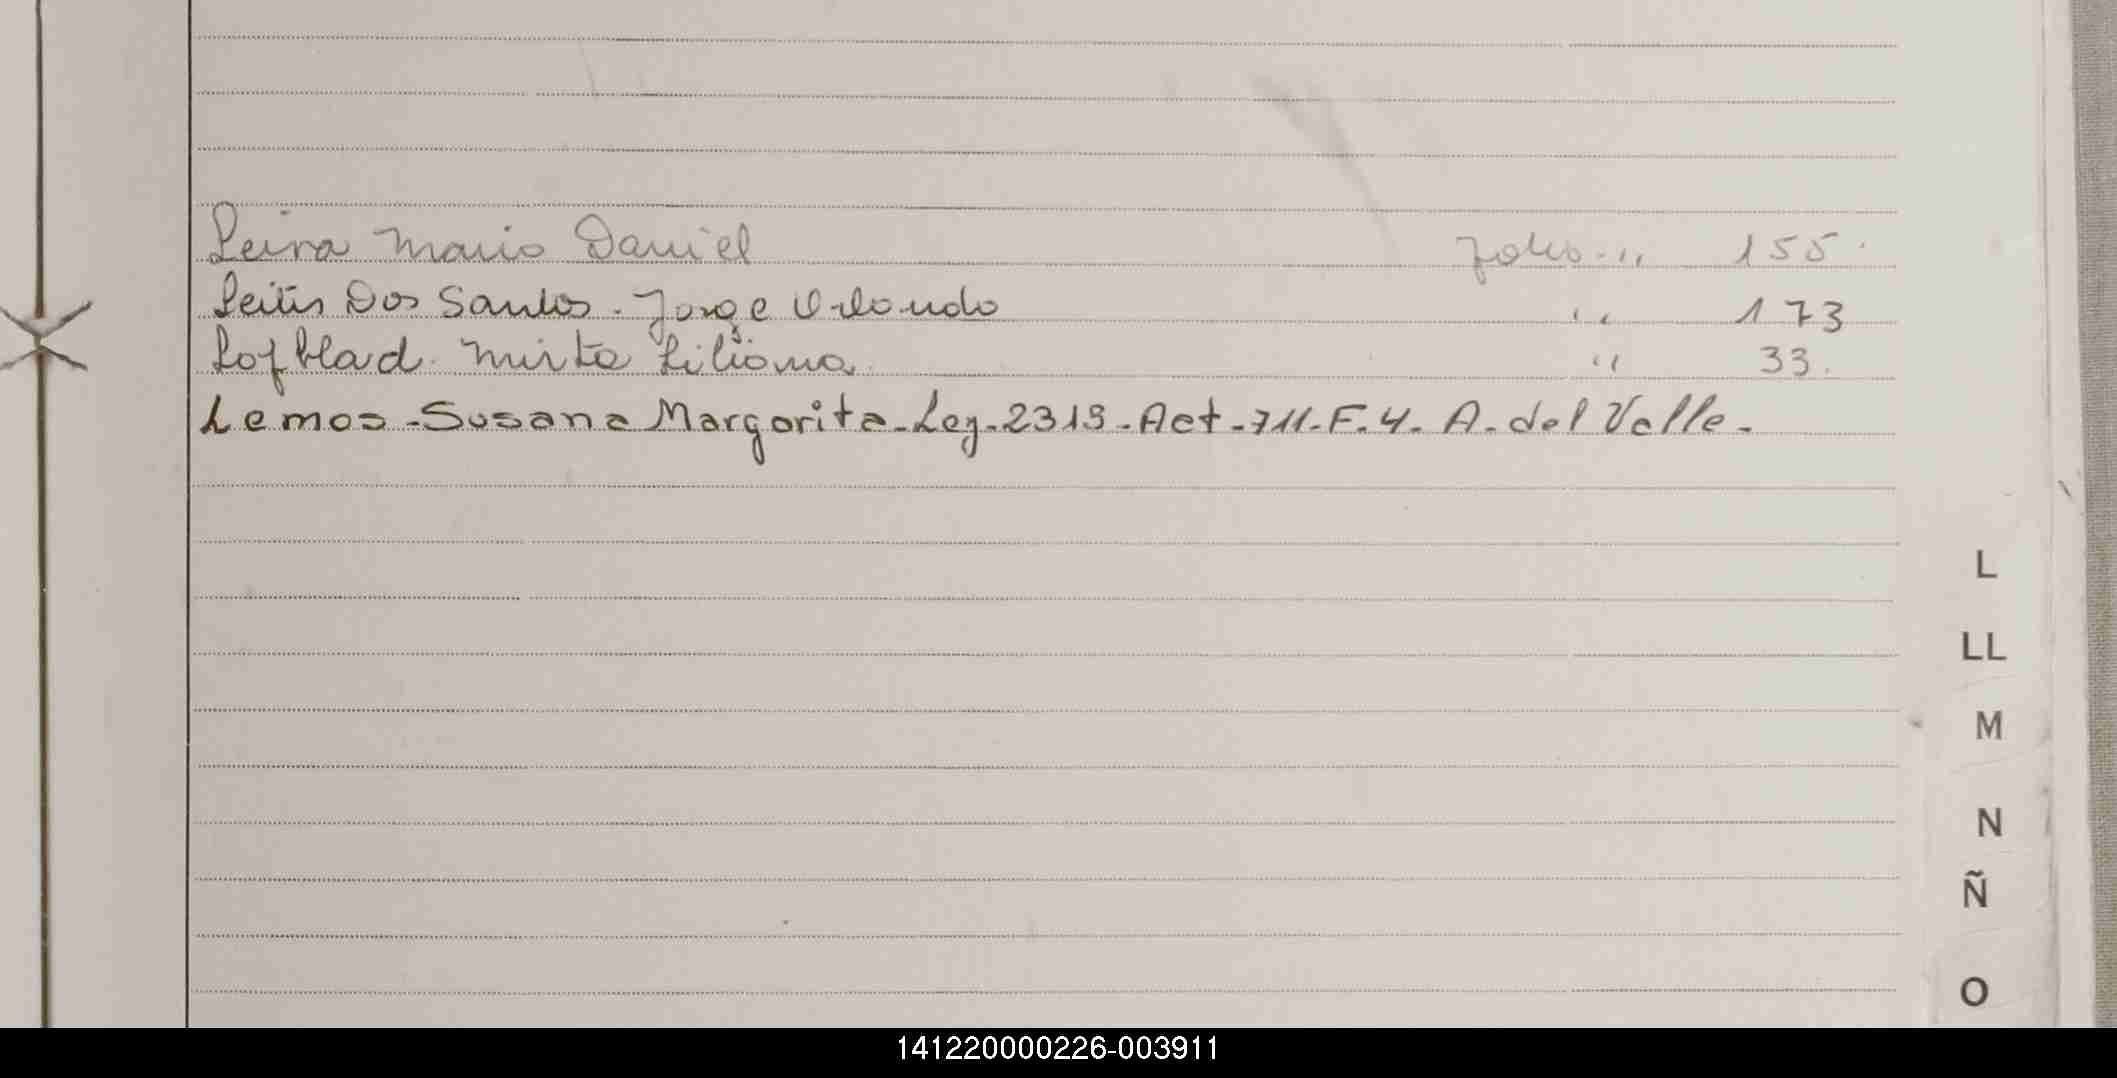 Leira Mario Daniel folio " 155.
Leitis Dos Santos. Jorge Orlando " 173
Lofblad. Mirta Liliana " 33.
Lemos-Susana Margarita-Leg-2319-Act-711-F.4. A. del Valle-
L
LL
M
N
Ñ
O
141220000226-003911